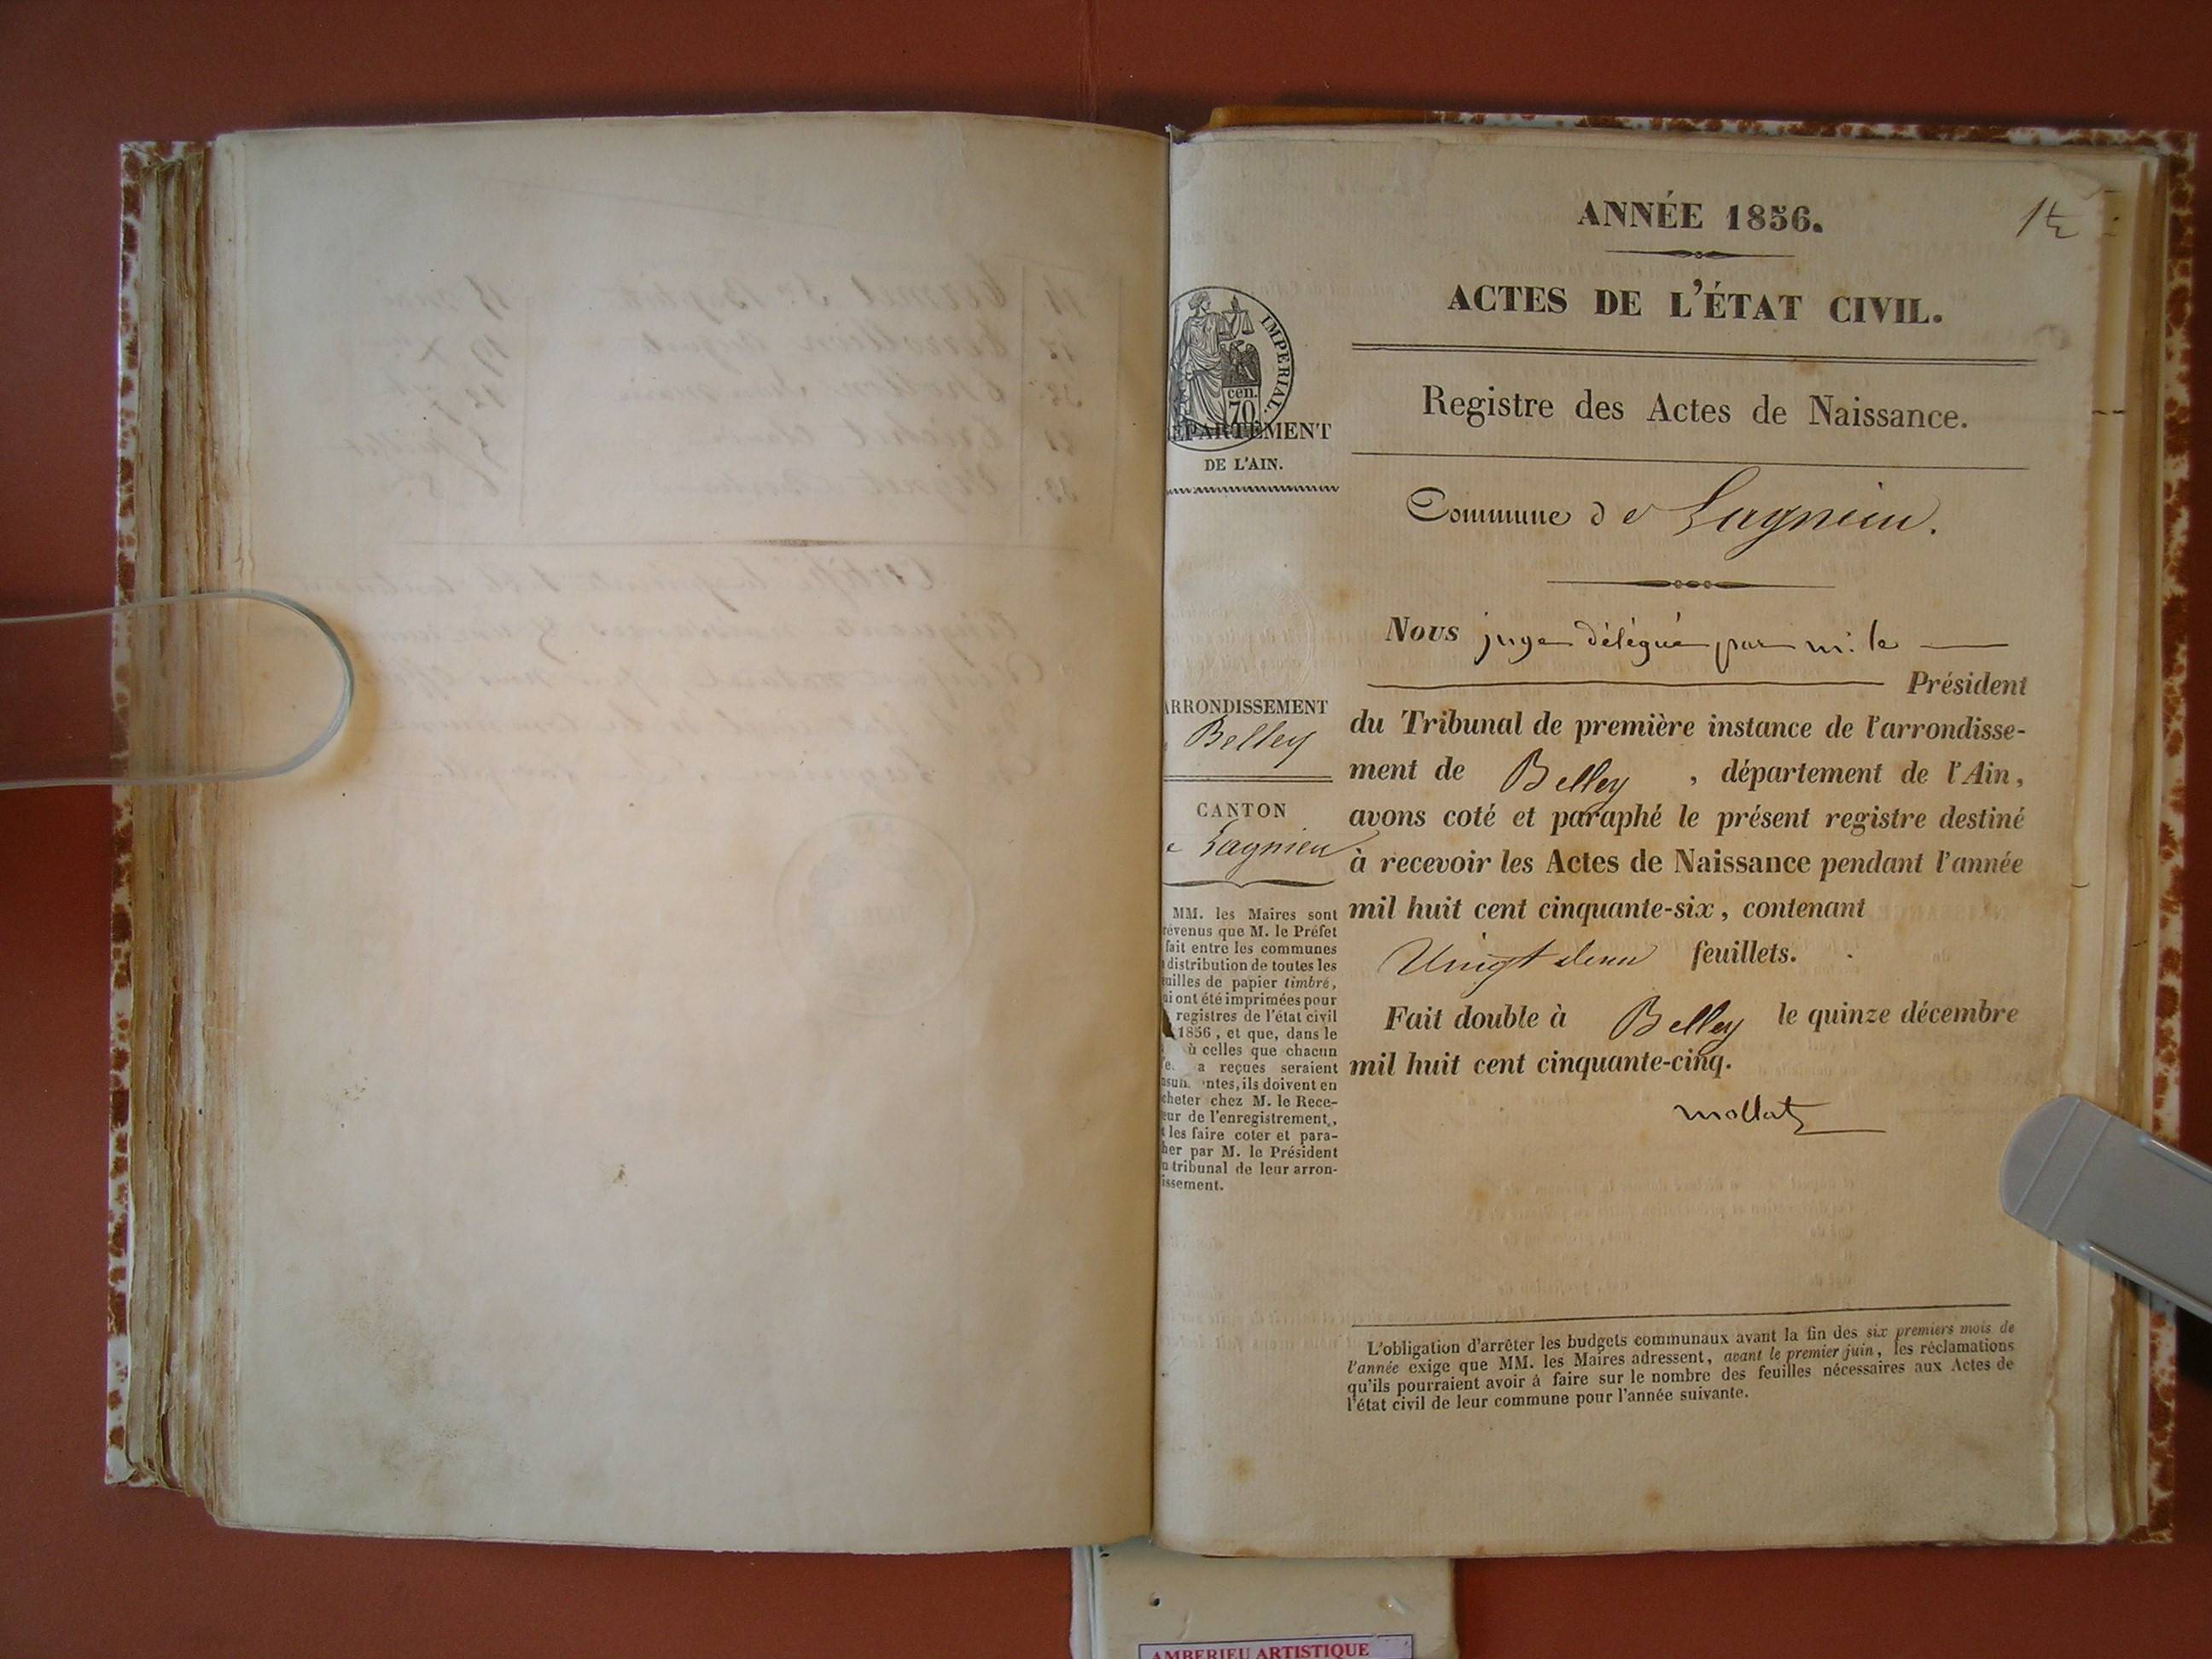 ANNÉE 1856.
ACTES DE L'ÉTAT CIVIL.
Registre des Actes de Naissance.
Commune de Lagnieu.
IMPERIAL.
cen.
70
EPARTEMENT
DE L'AIN.
ARRONDISSEMENT
Belley
CANTON
e Lagnieu
MM. les Maires sont
révenus que M. le Préfet
fait entre les communes
distribution de toutes les
uilles de papier timbré,
ui ont été imprimées pour
registres de l'état civil
1856, et que, dans le
ù celles que chacun
a reçues seraient
ntes, ils doivent en
cheter chez M. le Rece-
eur de l'enregistrement,
t les faire coter et para-
her par M. le Président
u tribunal de leur arron-
issement.
Nous juge délégué par m. le
Président
du Tribunal de première instance de l'arrondisse-
ment de Belley , département de l'Ain,
avons coté et paraphé le présent registre destiné
à recevoir les Actes de Naissance pendant l'année
mil huit cent cinquante-six, contenant
Vingt deux feuillets.
Fait double à Belley le quinze décembre
mil huit cent cinquante-cinq.
mollat
L'obligation d'arrêter les budgets communaux avant la fin des six premiers mois de
l'année exige que MM. les Maires adressent, avant le premier juin, les réclamations
qu'ils pourraient avoir à faire sur le nombre des feuilles nécessaires aux Actes de
l'état civil de leur commune pour l'année suivante.
AMBERIEU ARTISTIQUE